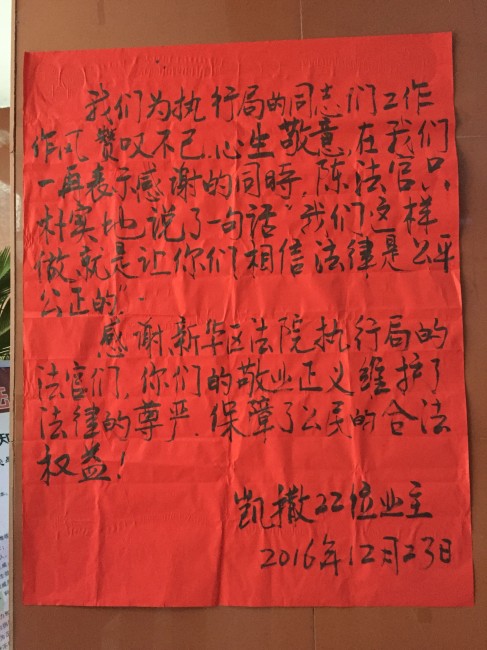 我们为执行局的同志们工作
作风赞叹不已.心生敬意,在我们
一再表示感谢的同时,陈法官只
朴实地说了一句话"我们这样
做,就是让你们相信法律是公平
公正的".
感谢新华区法院执行局的
法官们,你们的敬业正义维护了
法律的尊严.保障了公民的合法
权益!
凯撒22位业主
2016年12月23日